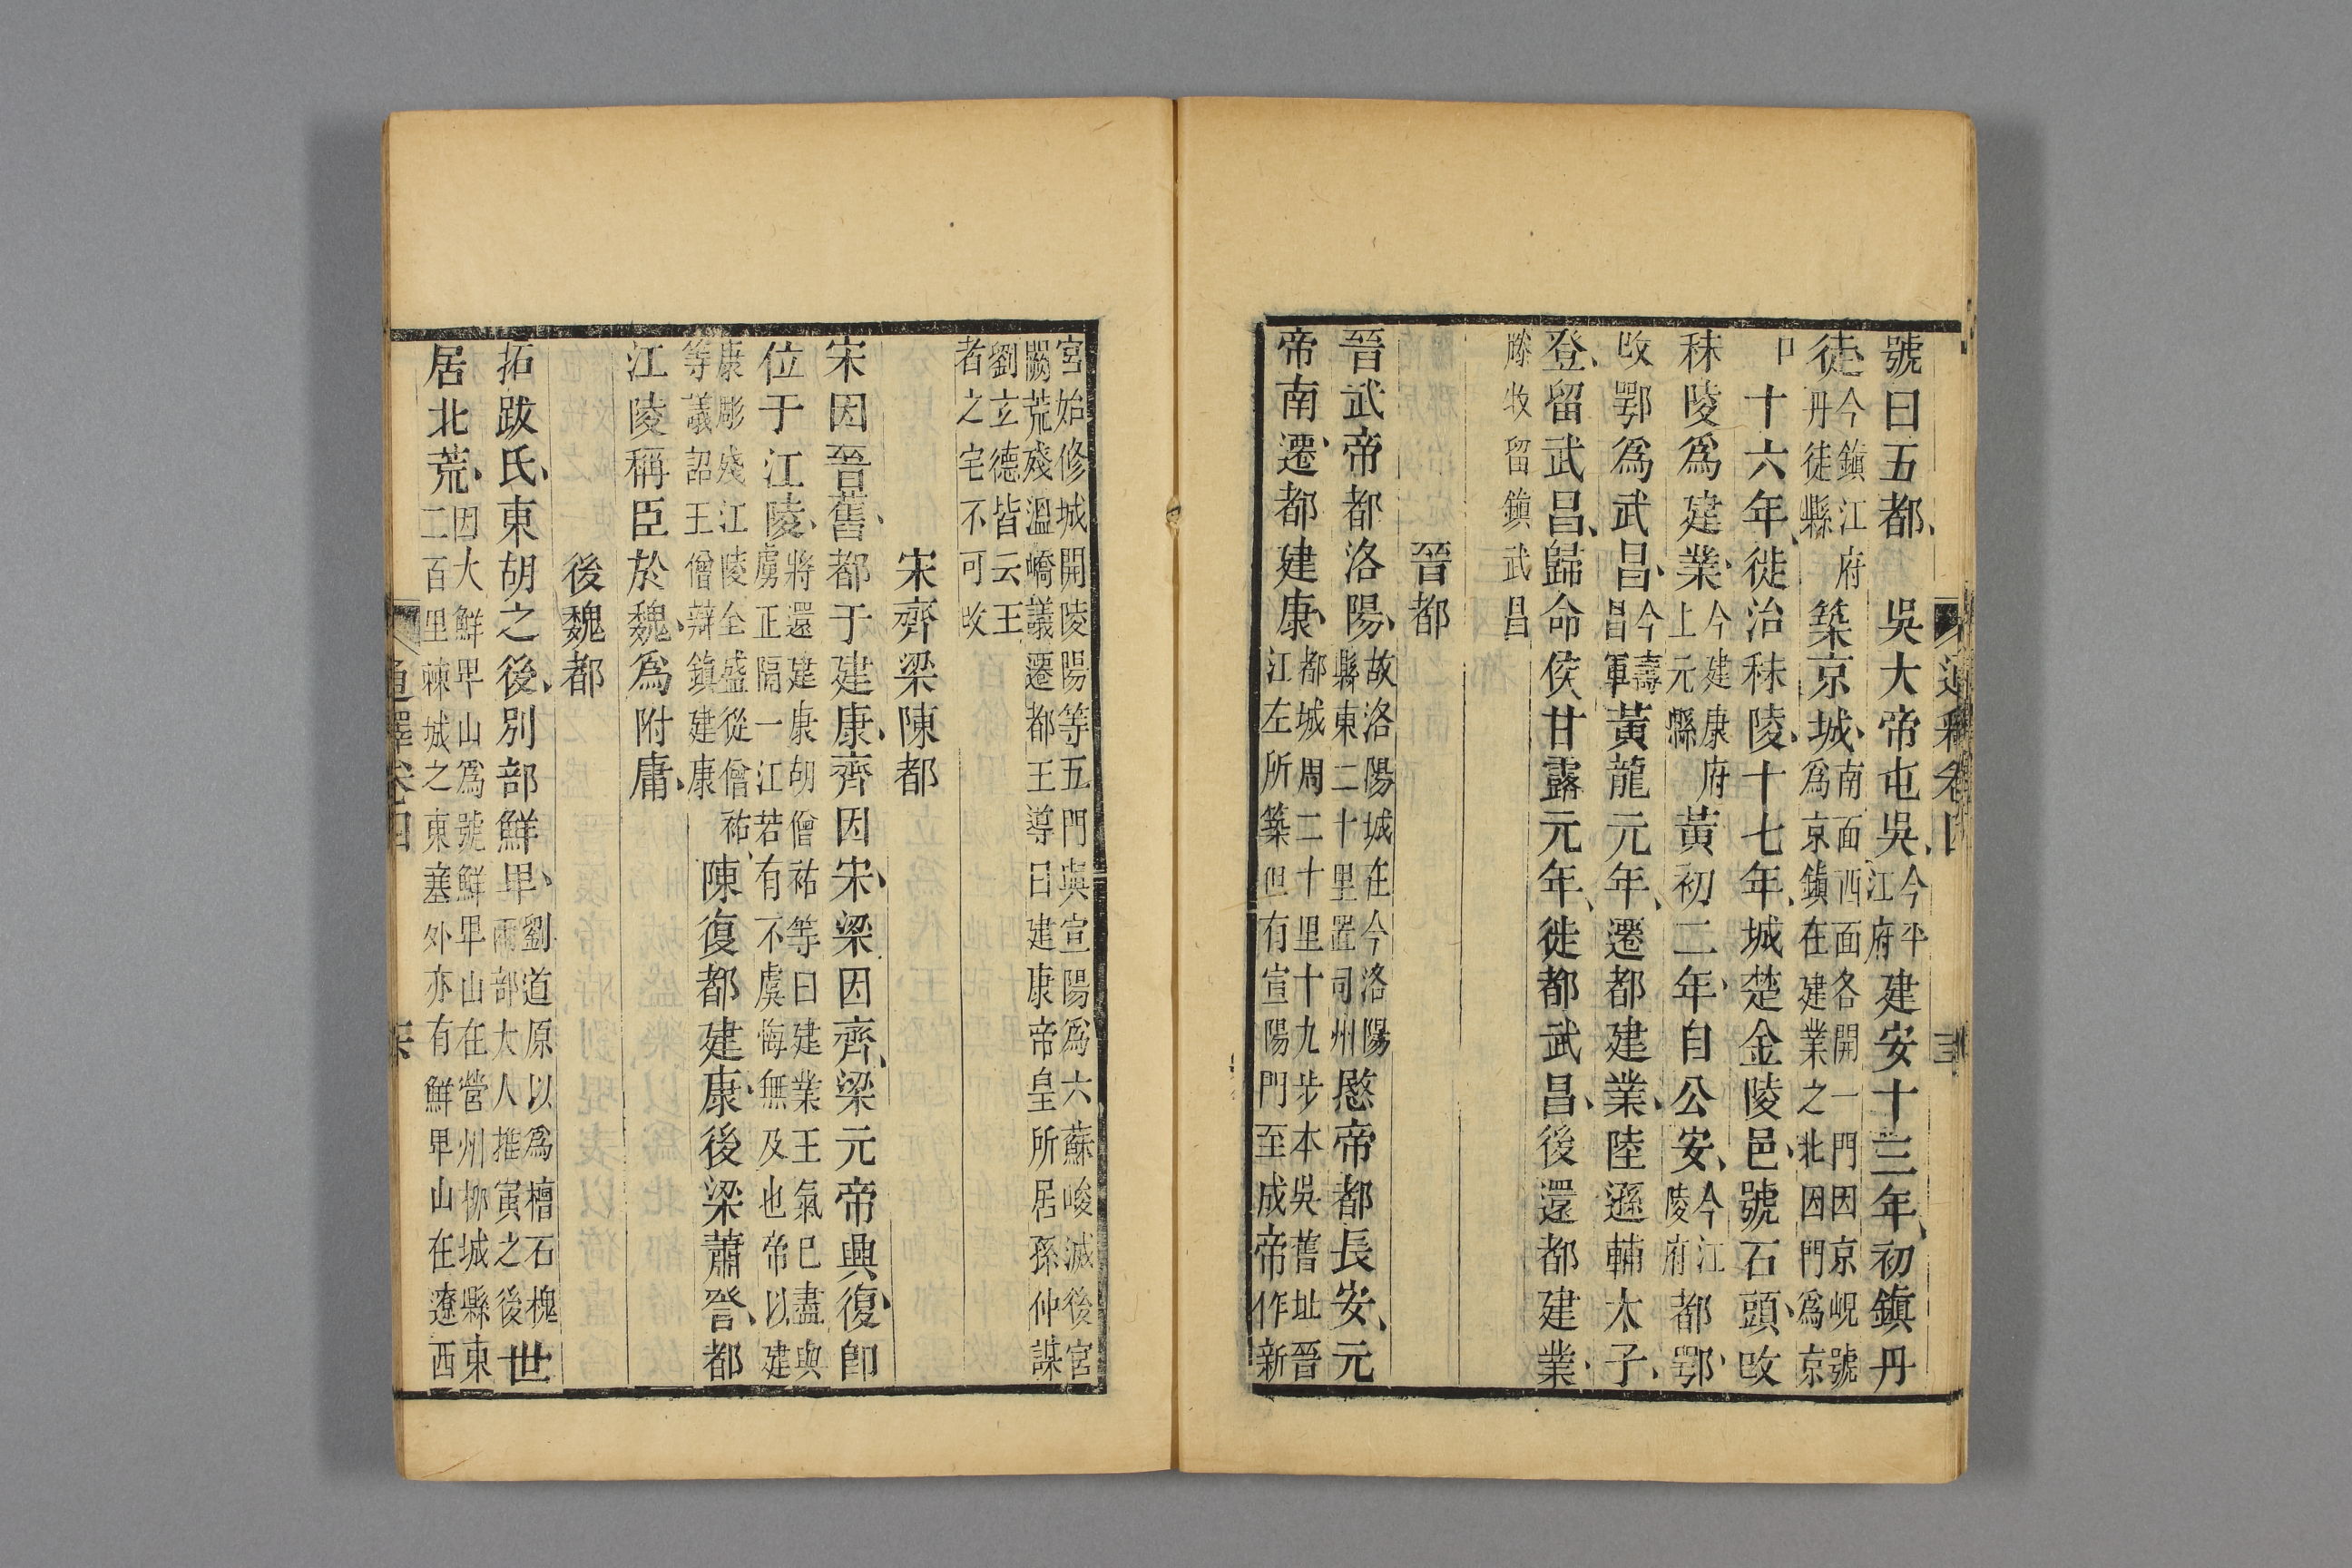 號曰五都　吳大帝屯吳今平江府建安十三年初鎮丹
徒今鎮江府丹徒縣築京城南面西面各開一門因京峴號為京鎮在建業之北因門為京
口十六年徙治秣陵十七年城楚金陵邑號石頭改
秣陵爲建業今建康府上元縣黃初二年自公安今江陵府都鄂
改鄂爲武昌今壽昌軍黃龍元年遷都建業陸遜輔太子
登留武昌歸命侯甘露元年徙都武昌後還都建業
滕牧留鎮武昌
晉都
晉武帝都洛陽故洛陽城在今洛陽縣東二十里置司州愍帝都長安元
帝南遷都建康都城周二十里十九步本吳舊址晉江左所築但有宣陽門至成帝作新
宮始修城開陵陽等五門與宣陽爲六蘇峻滅後宮闕荒殘溫嶠議遷都王導曰建康帝皇所居孫仲謀
劉玄德皆云王者之宅不可改
宋齊梁陳都
宋因晉舊都于建康齊因宋梁因齊梁元帝興復卽
位于江陵將還建康胡僧祐等曰建業王氣已盡與虜正隔一江若有不虞悔無及也帝以建
康彫殘江陵全盛從僧祐等議詔王僧辯鎮建康陳復都建康後梁蕭詧都
江陵稱臣於魏爲附庸
後魏都
拓跋氏東胡之後別部鮮卑劉道原以爲檀石槐之後兩部大人推寅之後世
居北荒因大鮮卑山爲號鮮卑山在營州柳城縣東二百里棘城之東塞外亦有鮮卑山在遼西
通釋卷四